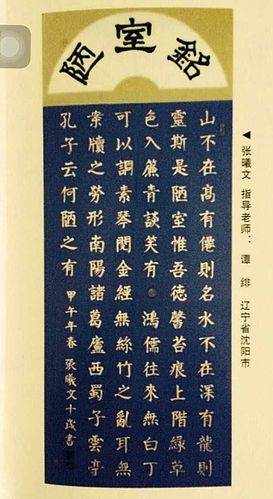 陋室銘
山不在高有僊則名水不在深有龍則
靈斯是陋室惟吾德馨苔痕上階緑草
色入簾青談笑有鴻儒往來無白丁
可以調素琴閲金經無絲竹之亂耳無
案牘之勞形南陽諸葛廬西蜀子雲亭
孔子云何陋之有 甲午年春張曦文十歲書
◀ 张曦文 指导老师：谭 绯 辽宁省沈阳市